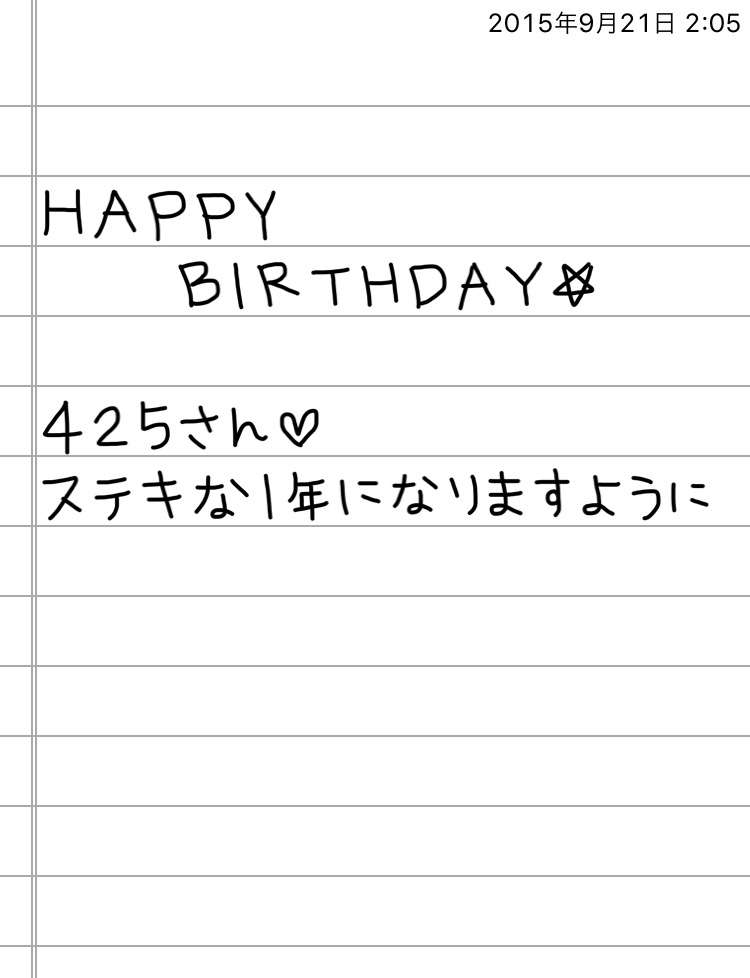 2015年9月21日 2:05
HAPPY
BIRTHDAY☆
425さん♡
ステキな1年になりますように